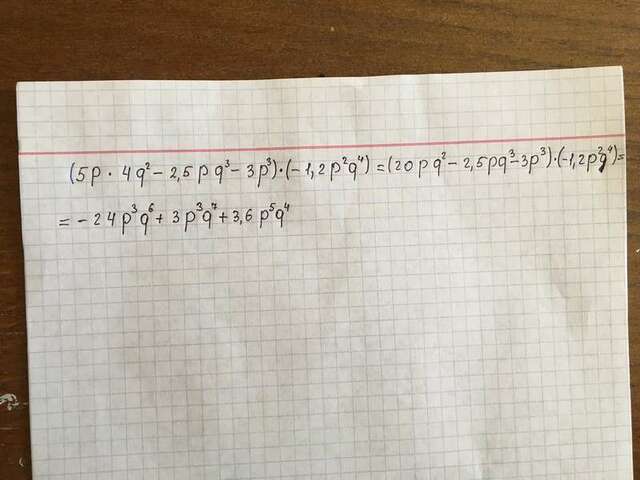 (5p · 4q² − 2,5pq³ − 3p³) · (−1,2p²q⁴) = (20pq² − 2,5pq³ − 3p³) · (−1,2p²q⁴) =
= − 24p³q⁶ + 3p³q⁷ + 3,6p⁵q⁴